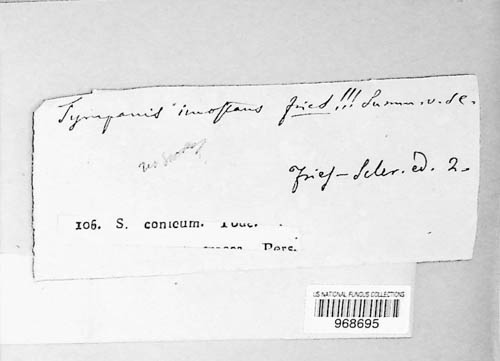 Tympanis inustans Fries!!! Summ. v. sc.
Fries — Scler. ed. 2.
106. S. conicum. Tode.
Pers.
US NATIONAL FUNGUS COLLECTIONS
968695